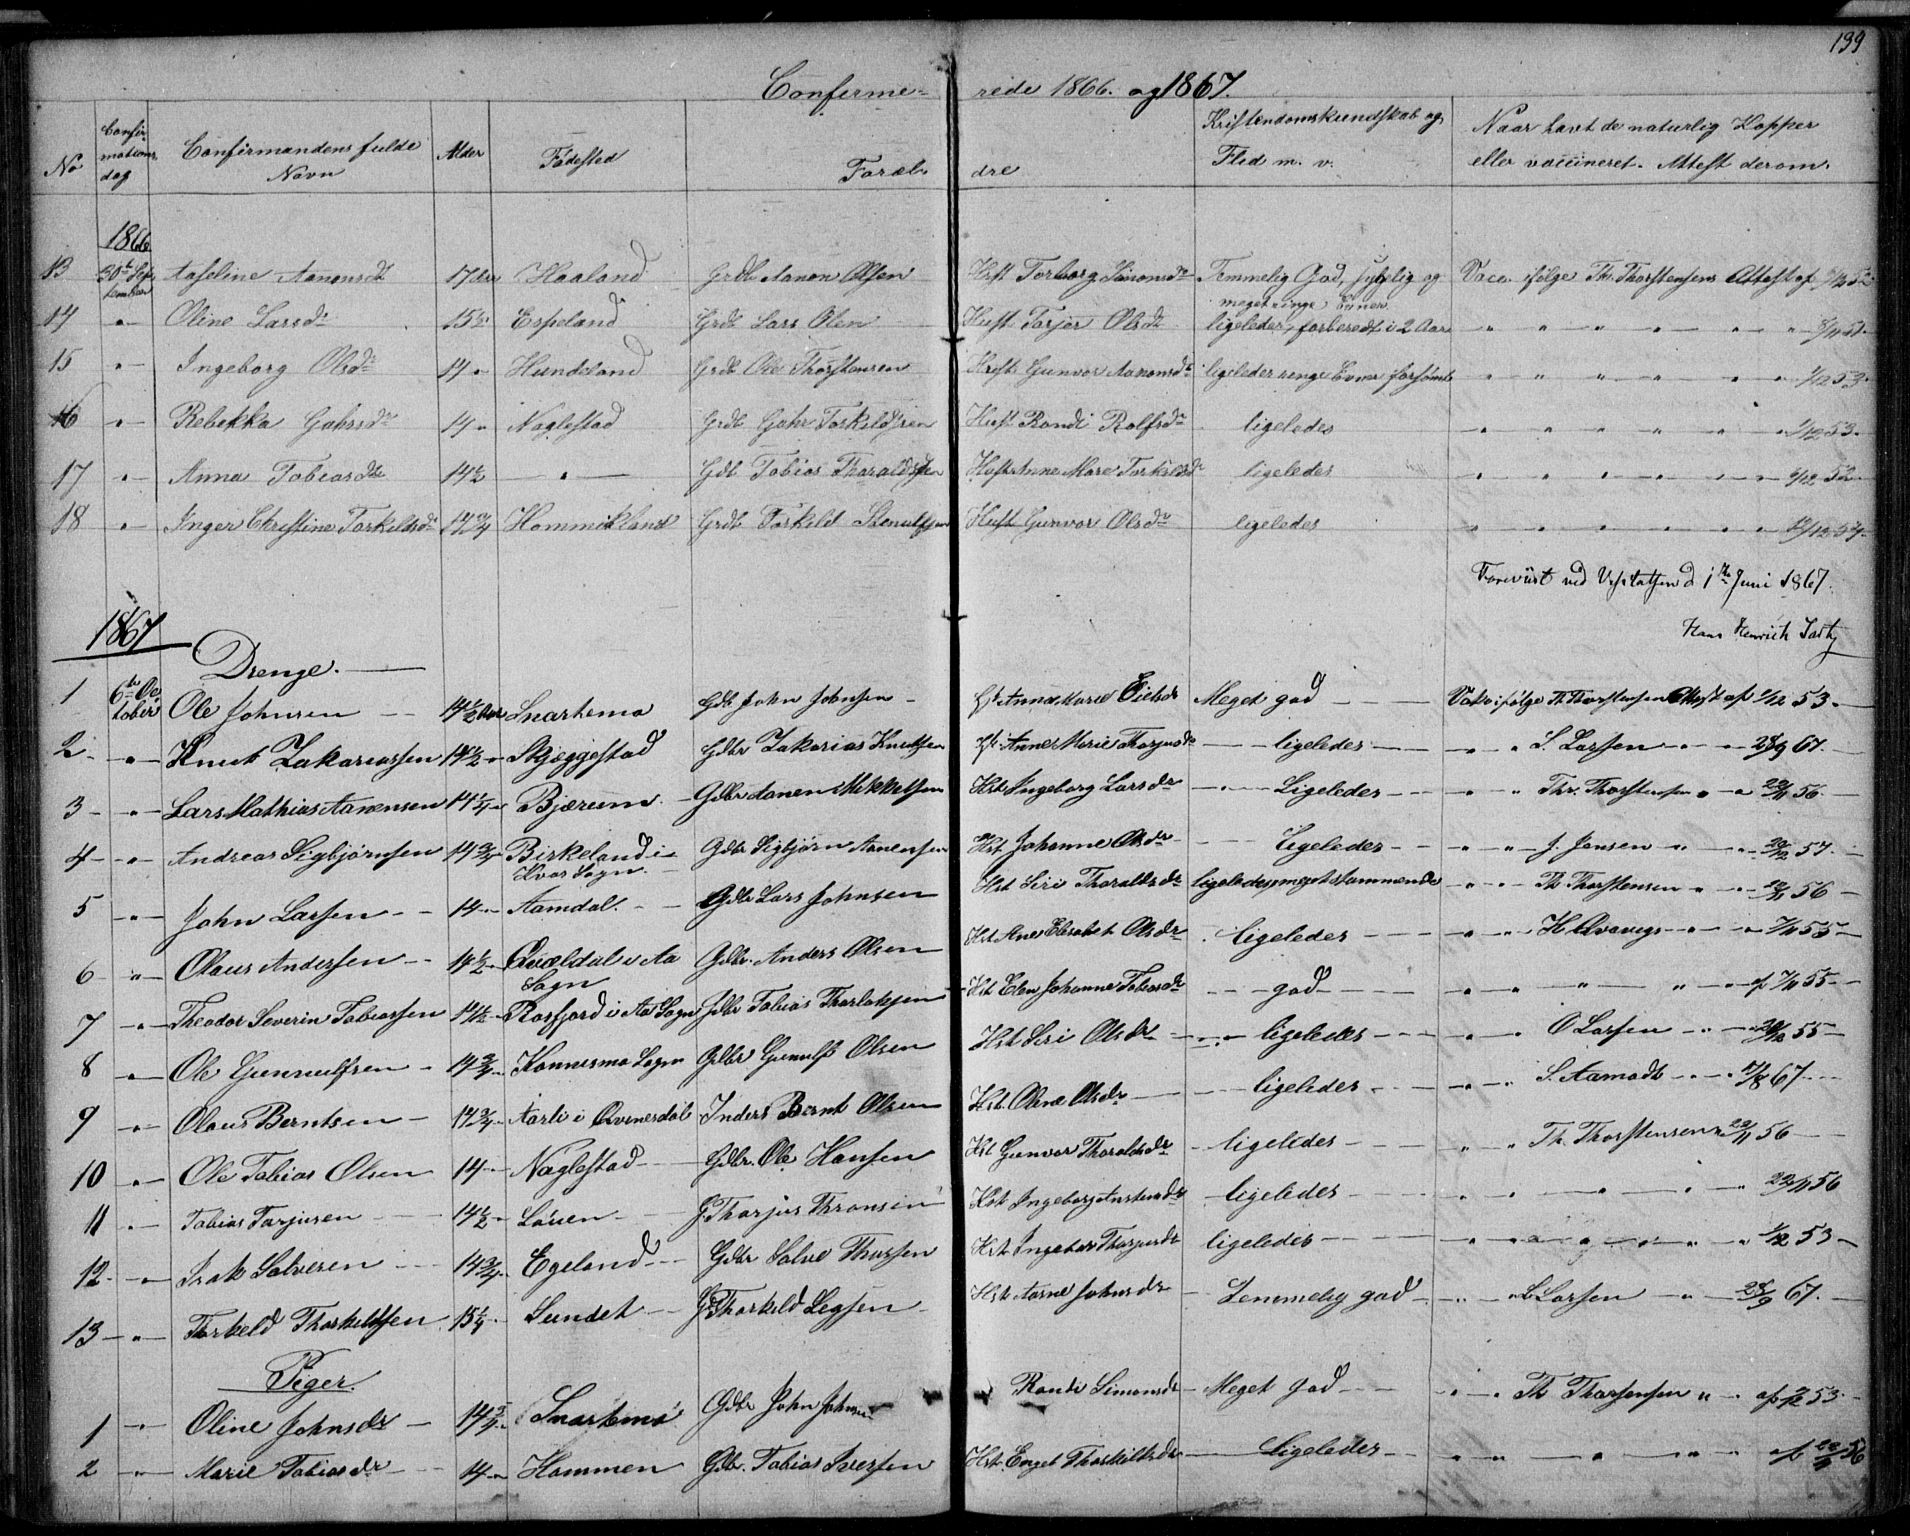 199
Confirme- rede 1866. og 1867.
No
Confir-
mations
dag
Confirmandens fulde
Navn
Alder
Fødested
Foræl-
dre
Kristendomskundskab og
Flid m. v.
Naar havt de naturlig Kopper
eller vaccineret. Attest derom.
1866
13 30te Sep- Aaseline Aanonsdt 17 Aar Haaland Grdb Aanon Olsen Hust Torborg Temmelig God, og Vacc. ifølge Th. Thorstensens Attest af
tember meget ringe Evner
14 " Oline Larsdr 15½ Espeland Grdb Lars Olsen Hust Torjer Olsdr ligeledes, forberedt i 2 Aar " " " " " "
15 " Ingeborg Olsdr 14 " Hundeland Grdb Ole Thorstensen Hust Gunvor Aanonsdr ligeledes ringe Evner forsømt " " " " " " 1/12 53.
16 " Rebekka Gahrsdr 14 " Naglestad Grdb Gahr Torkildsen Hust Randi Rolfsdr ligeledes " " " " " " 1/12 53.
17 " Anna Tobiasdtr 14½ " Gdb Tobias Tharaldsen Hust Anne Mare Torkildsdr ligeledes " " " " " " 6/12 52
18 " Inger Christine Torkildsdr 14¾ Hommikland Grdb Torkild Stenulfsen Hust Gunvor Olsdr ligeledes " " " " " "
Foreviist ved Visitatsen d 1ste Juni 1867.
Hans Henrich
1867
Drenge.
1 6te Oc- tober Ole Johnsen 14½ Aar Snartemo Gdb John Johnsen Hst Anna Marie Meget god Vakc. ifølge Th Thorstensens Attest af 1/12 53.
2 " Knut Zakariassen 14½ " Skjeggestad Gdbr Zakarias Knutsen Hst Anne Marie Thorjusdr ligeledes " " S. Larsen " " 28/9 67.
3 " Lars Mathias Aanensen 14¼ " Bjærum Gdbr Aanen Mikkelsen Hst Ingeborg Larsdr Ligeledes " " Thr. Thorstensen " " 22/11 56.
4 " Andreas Sigbjørnsen 14¾ " Birkeland i Gdbr Sigbjørn Aanensen Hst Johanne Olsdr Ligeledes " " J. Jensen " "
Kvas Sogn.
5 " John Larsen 14 " Aamdal. Gdbr Lars Johnsen Hst Siri Tharaldsdr ligeledes, meget stammende " " Th Thorstensen " " 56
6 " Olaus Andersen 14½ " Qvældal i Aa Gdbr. Anders Olsen Hst Ane Elisabet Olsdr ligeledes " " H Qvavigs " " 7/11 55
Sogn
7 " Theodor Severin Tobiassen 14½ " Rosfjord i Aa Sogn Gdbr Tobias Thorlaksen Hst Elen Johanne Tobiasdr god " " " " " af 7/11 55
8 " Ole Gunnulfsen 14¾ " Konnesmo Sogn Gdbr Gunulf Olsen Hst Siri Olsdr ligeledes " " O Larsen " " 55
9 " Olaus Berntsen 14¾ " Aarli i Qvinesdal Inders Bernt Olsen Hst Oline Olsdr ligeledes " " S. Aamodt " " 67
10 " Ole Tobias Olsen 14 " Naglestad Gdbr. Ole Hansen Hst Gunvor Tharaldsdr ligeledes " " Th. Thorstensen " 22/11 56
11 " Tobias Torjusen 14½ " Løuen G Thorjus Thronsen Hst Ingeborg Anstensdr ligeledes " " " " 22/11 56
12 " Isak Salvesen 14¾ " Egeland Gdbr Salve Thorsen Hst Ingebor Thorjusdr ligeledes " " " " " " 1/12 53
13 " Torkeld Thorkeldsen 15¼ " Sundet Gdbr Thorkeld Legsen Hst Aasne Johnsdr Temmelig god " " Larsen " 28/9 67.
Piger.
1 " Oline Johnsdr 14¾ " Snartemo Gdbr John Johnsen Randi Simonsdr Meget god " " Th Thorstensen " " af 53.
2 " Marie Tobiasdr 14 " Hommen Gdbr. Tobias Iversen Hst. Engel Thorkildsdr Ligeledes " " " " af 56